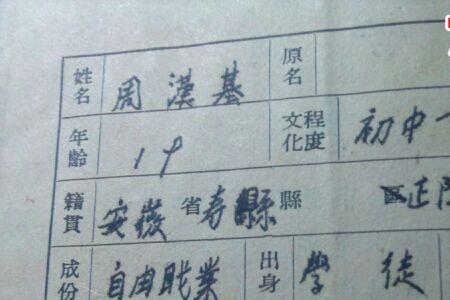 姓名 周漢基 原名
年齡 19 文化程度 初中一
籍貫 安徽省寿縣縣 區正陽
成份 自由职業 出身 學徒